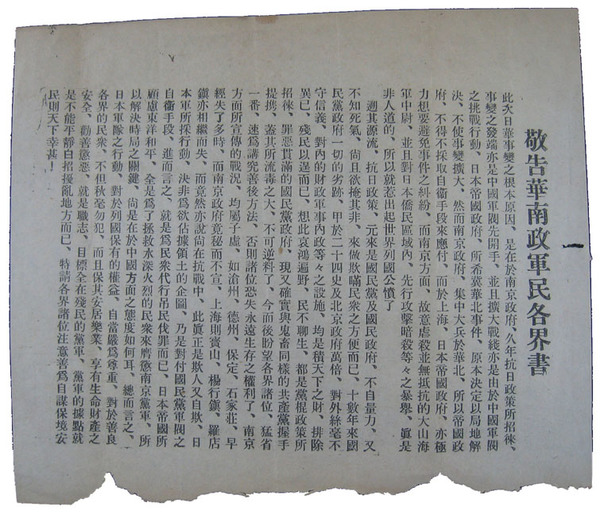 敬告華南政軍民各界書
此次日華事變之根本原因、是在於南京政府、久年抗日政策所招徠、
事變之發端亦是中國軍閥先開手、並且擴大戰綫亦是由於中國軍閥
之挑戰行動、日本帝國政府、所希冀華北事件、原本決定以局地解
決、不使事變擴大、然而南京政府、集中大兵於華北、所以帝國政
府、不得不採取自衞手段來應付、而於上海、日本帝國政府、亦極
力想要避免事件之糾紛、而南京方面、故意虐殺並無抵抗的大山海
軍中尉、並且對日本僑民區域內、先行攻擊暗殺等々之暴舉、眞是
非人道的、所以就惹出起世界列國公憤了
溯其源流、抗日政策、元來是國民黨及國民政府、不自量力、又
不知死氣、尙且欲掩其非、來做欺瞞民衆之方便而已、十數年來國
民黨政府一切的劣跡、甲於二十四史及北京政府萬倍、對外絲毫不
守信義、對內的財政軍事內政等々之設施、均是積天下之財、排除
異己、殘民以逞而已、想此哀鴻遍野、民不聊生、都是黨棍政策所
招徠、罪惡貫滿的國民黨政府、現又確實與鬼畜同樣的共產黨握手
提携、蓋其所流毒之大、不可逆料了、今而後盼望各界諸位、猛省
一番、速爲講究善後方法、否則諸位恐失永遠生存之權利了、南京
方面所宣傳的戰況、均屬子虛、如滄州、德州、保定、石家莊、早
經失了多時、而南京政府竟秘而不宣、上海則寶山、楊行鎭、羅店
鎭亦相繼而失、而竟然亦說尙在抗戰中、此眞正是欺人又自欺、日
本軍所採行動、決非爲欲佔據領土的企圖、乃是對付國民黨軍閥之
自衞手段、進而言之、就是爲民衆代行吊民伐罪而已、日本帝國所
顧慮東洋和平、全是爲了拯救水深火烈的民衆來膺懲南京黨軍、所
以解決時局之關鍵、尙是在於中國方面之態度如何耳、總而言之、
日本軍歐之行動、對於列國保有的權益、自當嚴爲尊重、對於善良
各界的民衆、不但秋毫勿犯、而且保其安居樂業、享有生命財產之
安全、勸善懲惡、就是職志、目標全在殘民的黨軍、黨軍的據點就
是不能平靜白招擾亂地方而已、特請各界諸位注意善爲自謀保境安
民則天下幸甚！